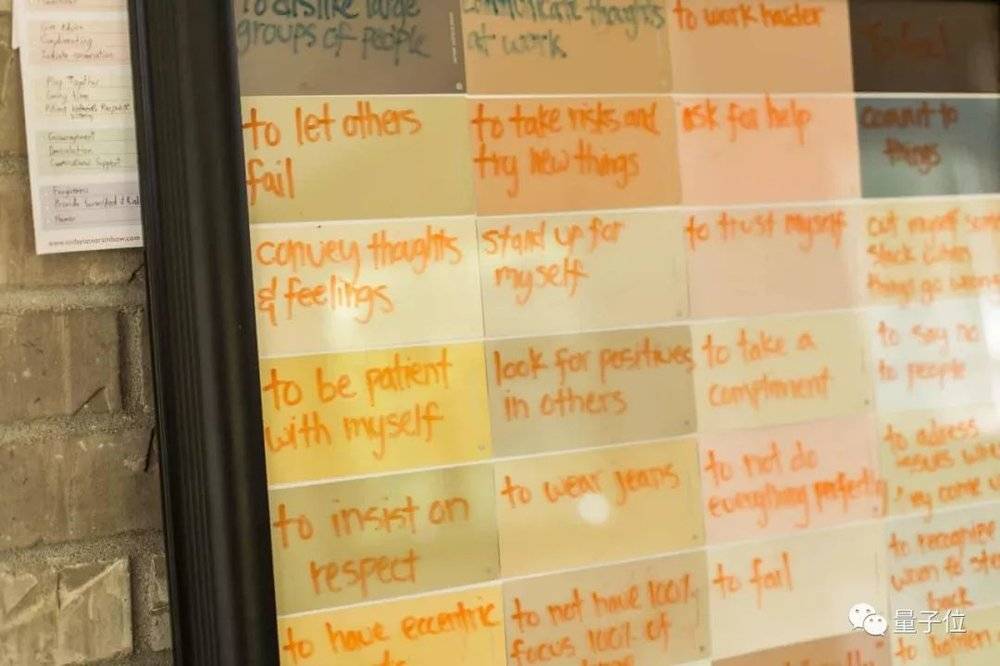 Give Advice
Complimenting
Initiate conversation
Play Together
Family time
Encouragement
Consolation
Forgiveness
Humor
to dislike large
groups of people
communicate thoughts
at work
to work harder
to let others
fail
to take risks and
try new things
ask for help
commit to
things
convey thoughts
& feelings
stand up for
myself
to trust myself
cut myself some
slack when
things go wrong
to be patient
with myself
look for positives
in others
to take a
compliment
to say no
to people
to insist on
respect
to wear jeans
to not do
everything perfectly
to adress
issues
come
to have eccentric
to not have 100%
focus 100% of
to fail
to recognize
step
back
to
量子位